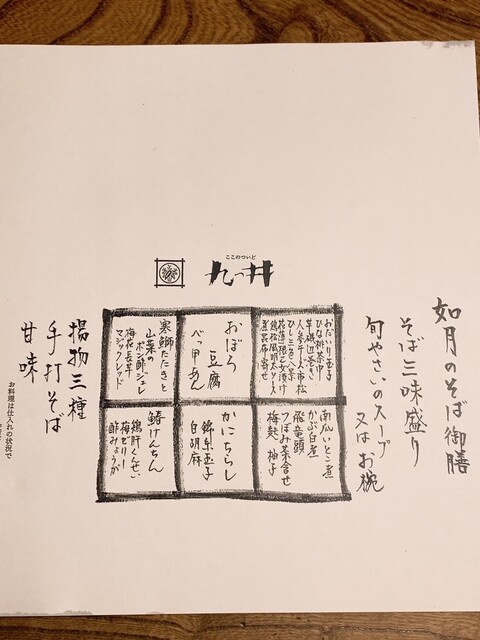 ここのついど
九つ井
如月のそば御膳
そば三味盛り
旬やさいのスープ
又はお椀
おだいり玉子
ひな餅茶巾
芋磯辺巻き
人参チーズ市松
ひし三色八寸
花蓮根こん漬け
鶏松風明太ソース
煮昆布寄せ
おぼろ
豆腐
べっ甲あん
寒鰤たたきと
山菜の
ポン酢ジュレ
梅花長芋
マジックレッド
南瓜いとこ煮
かぶ白煮
飛竜頭
つぼみ菜含せ
梅麩 柚子
かにちらし
錦糸玉子
白胡麻
鰆けんちん
鶏肝くんせい
梅ゼリー
酢みょうが
揚物三種
手打そば
甘味
お料理は仕入れの状況で